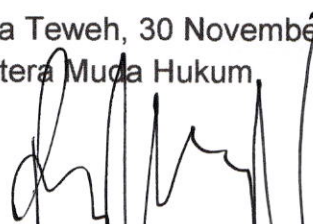 a Teweh, 30 Novembe
tera Muda Hukum